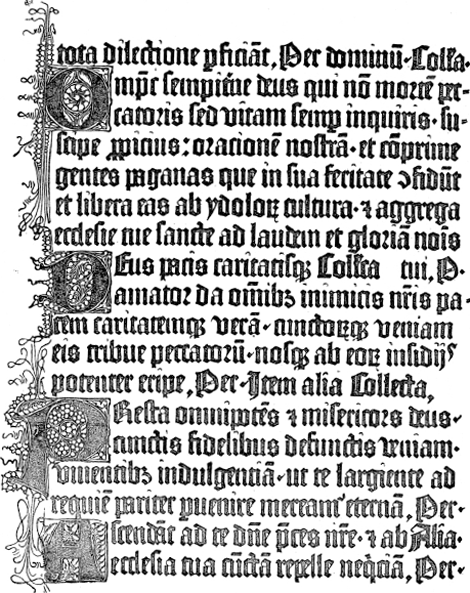 tota dilectione ꝑficiāt, Per dominū· Collecta.
Omp̄s sempit̄ne deus qui nō mortē pec-
catoris sed vitam semꝑ inquiris· su-
scipe ꝓpicius: orationē nostrā· et cōprime
gentes paganas que in sua feritate ↄfidūt
et libera eas ab ydoloꝝ cultura· ⁊ aggrega
ecclesie tue sancte ad laudem et gloriā nois̄
DEus pacis caritatisqꝫ Collecta tui, P.
amator da om̄ibꝫ inimicis nr̄is pa-
cem caritatemqꝫ verā· cunctoꝝqꝫ veniam
eis tribue peccatorū· nosqꝫ ab eoꝝ insidijs
potenter eripe, Per· Item alia Collecta,
PResta omnipotēs ⁊ misericors deus·
cunctis fidelibus defunctis veniam·
viuentibꝫ indulgentiā· ut te largiente ad
requiē pariter ꝑuenire mereant᷑ eternā, Per·
AScendāt ad te dn̄e p̄ces nr̄e· ⁊ ab Alia·
ecclesia tua cūctā repelle neq̇ciā, Per·